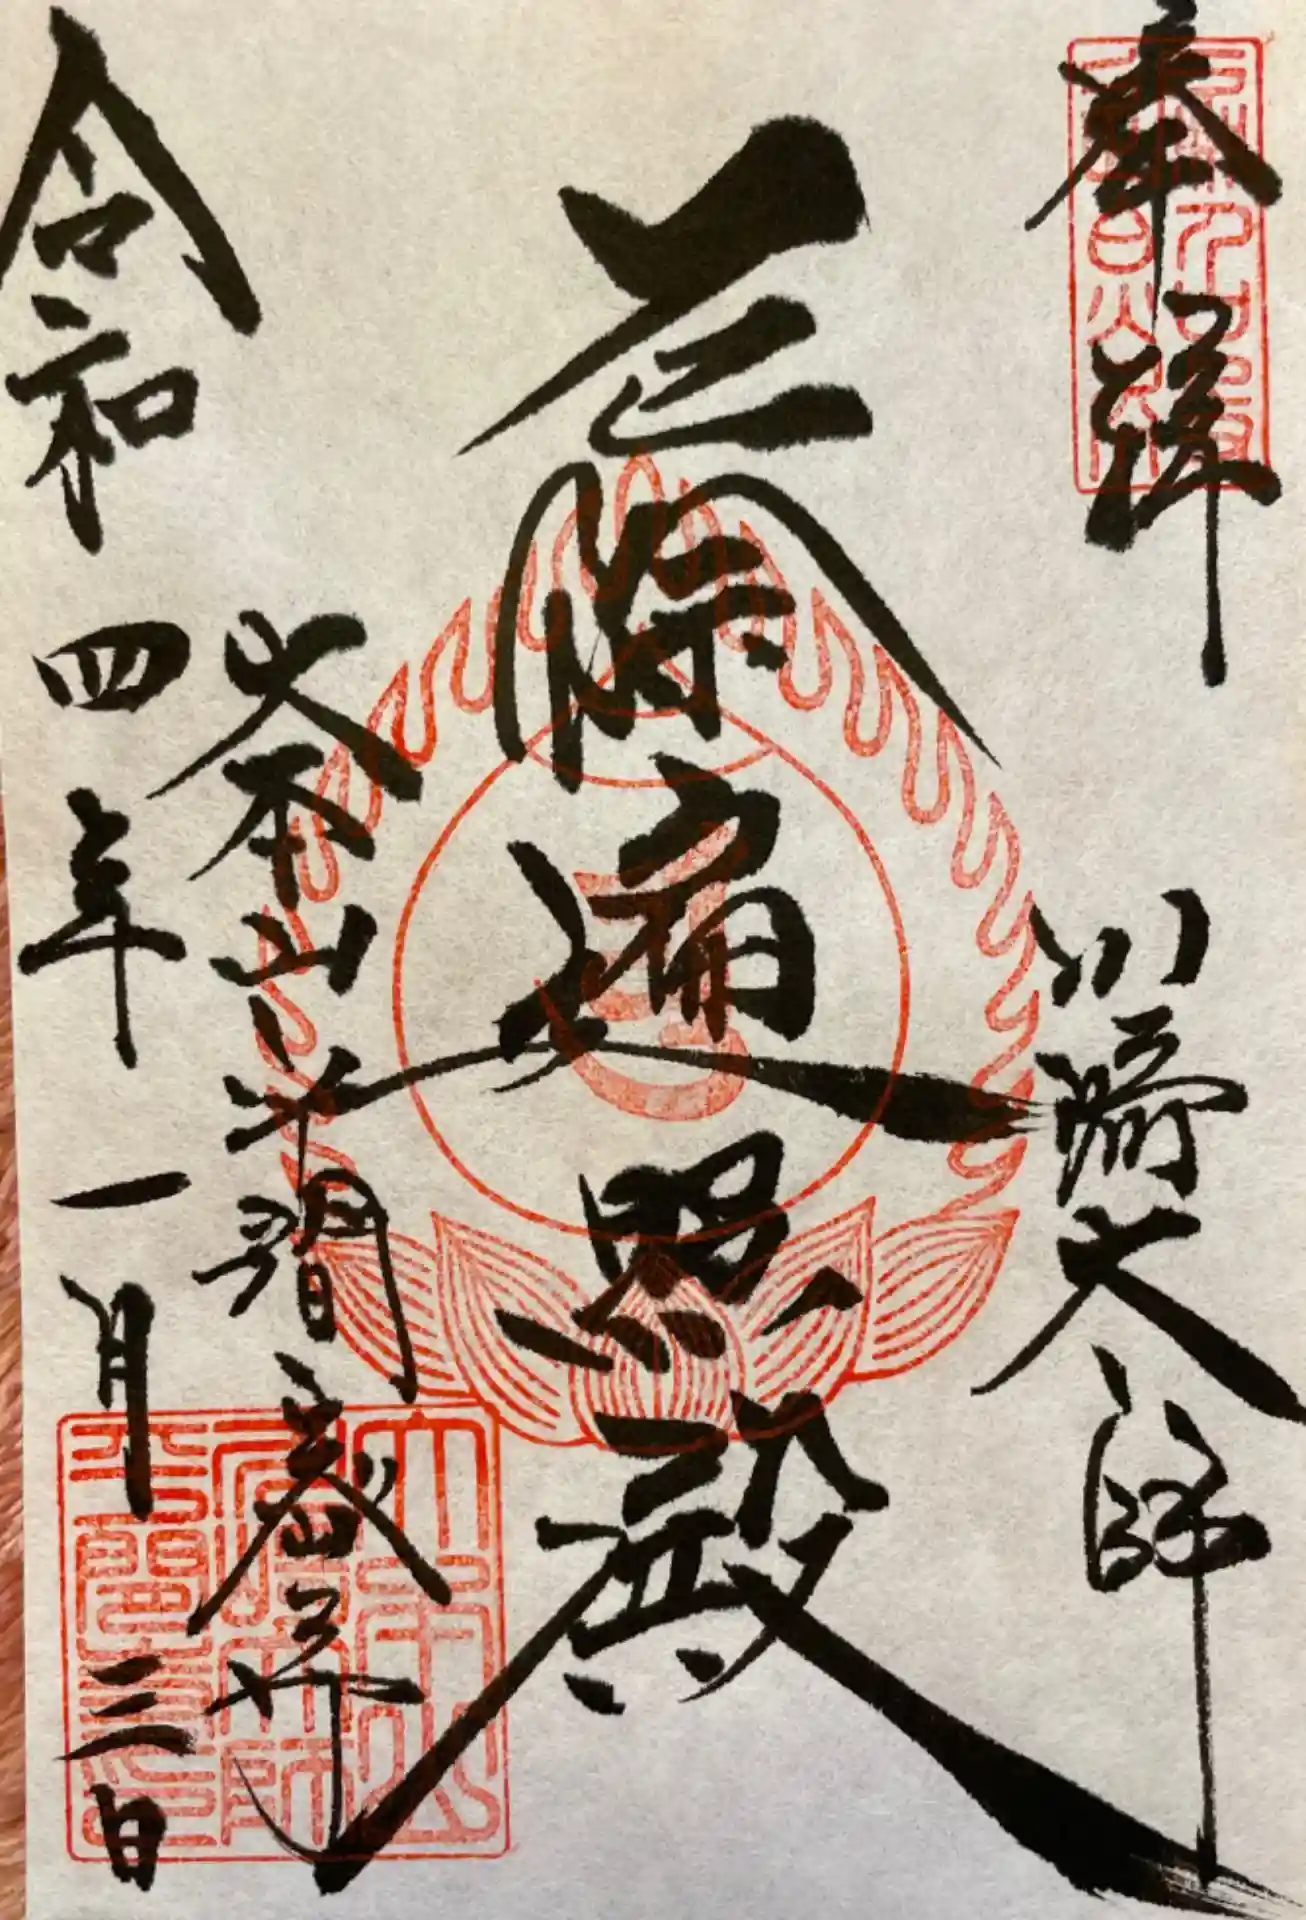 奉拝
川崎大師
厄除遍照殿
大本山平間
令和四年一月三日